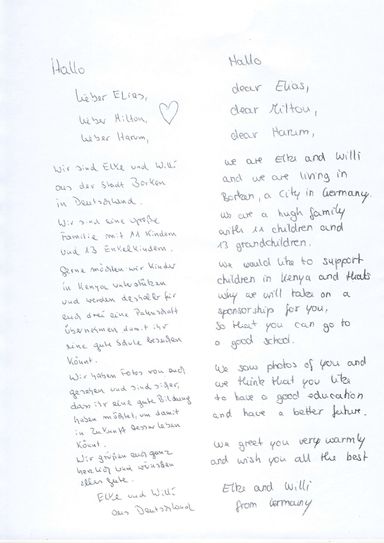 Hallo
Lieber Elias,
Lieber Milton,
Lieber Harum,
Wir sind Elke und Willi
aus der Stadt Borken
in Deutschland.
Wir sind eine große
Familie mit 11 Kindern
und 13 Enkelkindern.
Gerne möchten wir Kinder
in Kenya unterstützen
und werden deshalb für
euch drei eine Patenschaft
übernehmen damit ihr
eine gute Schule besuchen
könnt.
Wir haben Fotos von euch
gesehen und sind sicher,
dass ihr eine gute Bildung
haben möchtet, um damit
in Zukunft besser leben
könnt.
Wir grüßen euch ganz
herzlich und wünschen
alles Gute.
Elke und Willi
aus Deutschland
Hallo
dear Elias,
dear Milton,
dear Harum,
we are Elke and Willi
and we are living in
Borken, a City in Germany.
we are a hugh family
with 11 children and
13 grandchildren.
we would like to support
children in Kenya and thats
why we will take on a
sponsorship for you,
so that you can go to
a good school.
We saw photos of you and
we think that you like
to have a good education
and have a better future.
we greet you very warmly
and wish you all the best
Elke and Willi
from Germany